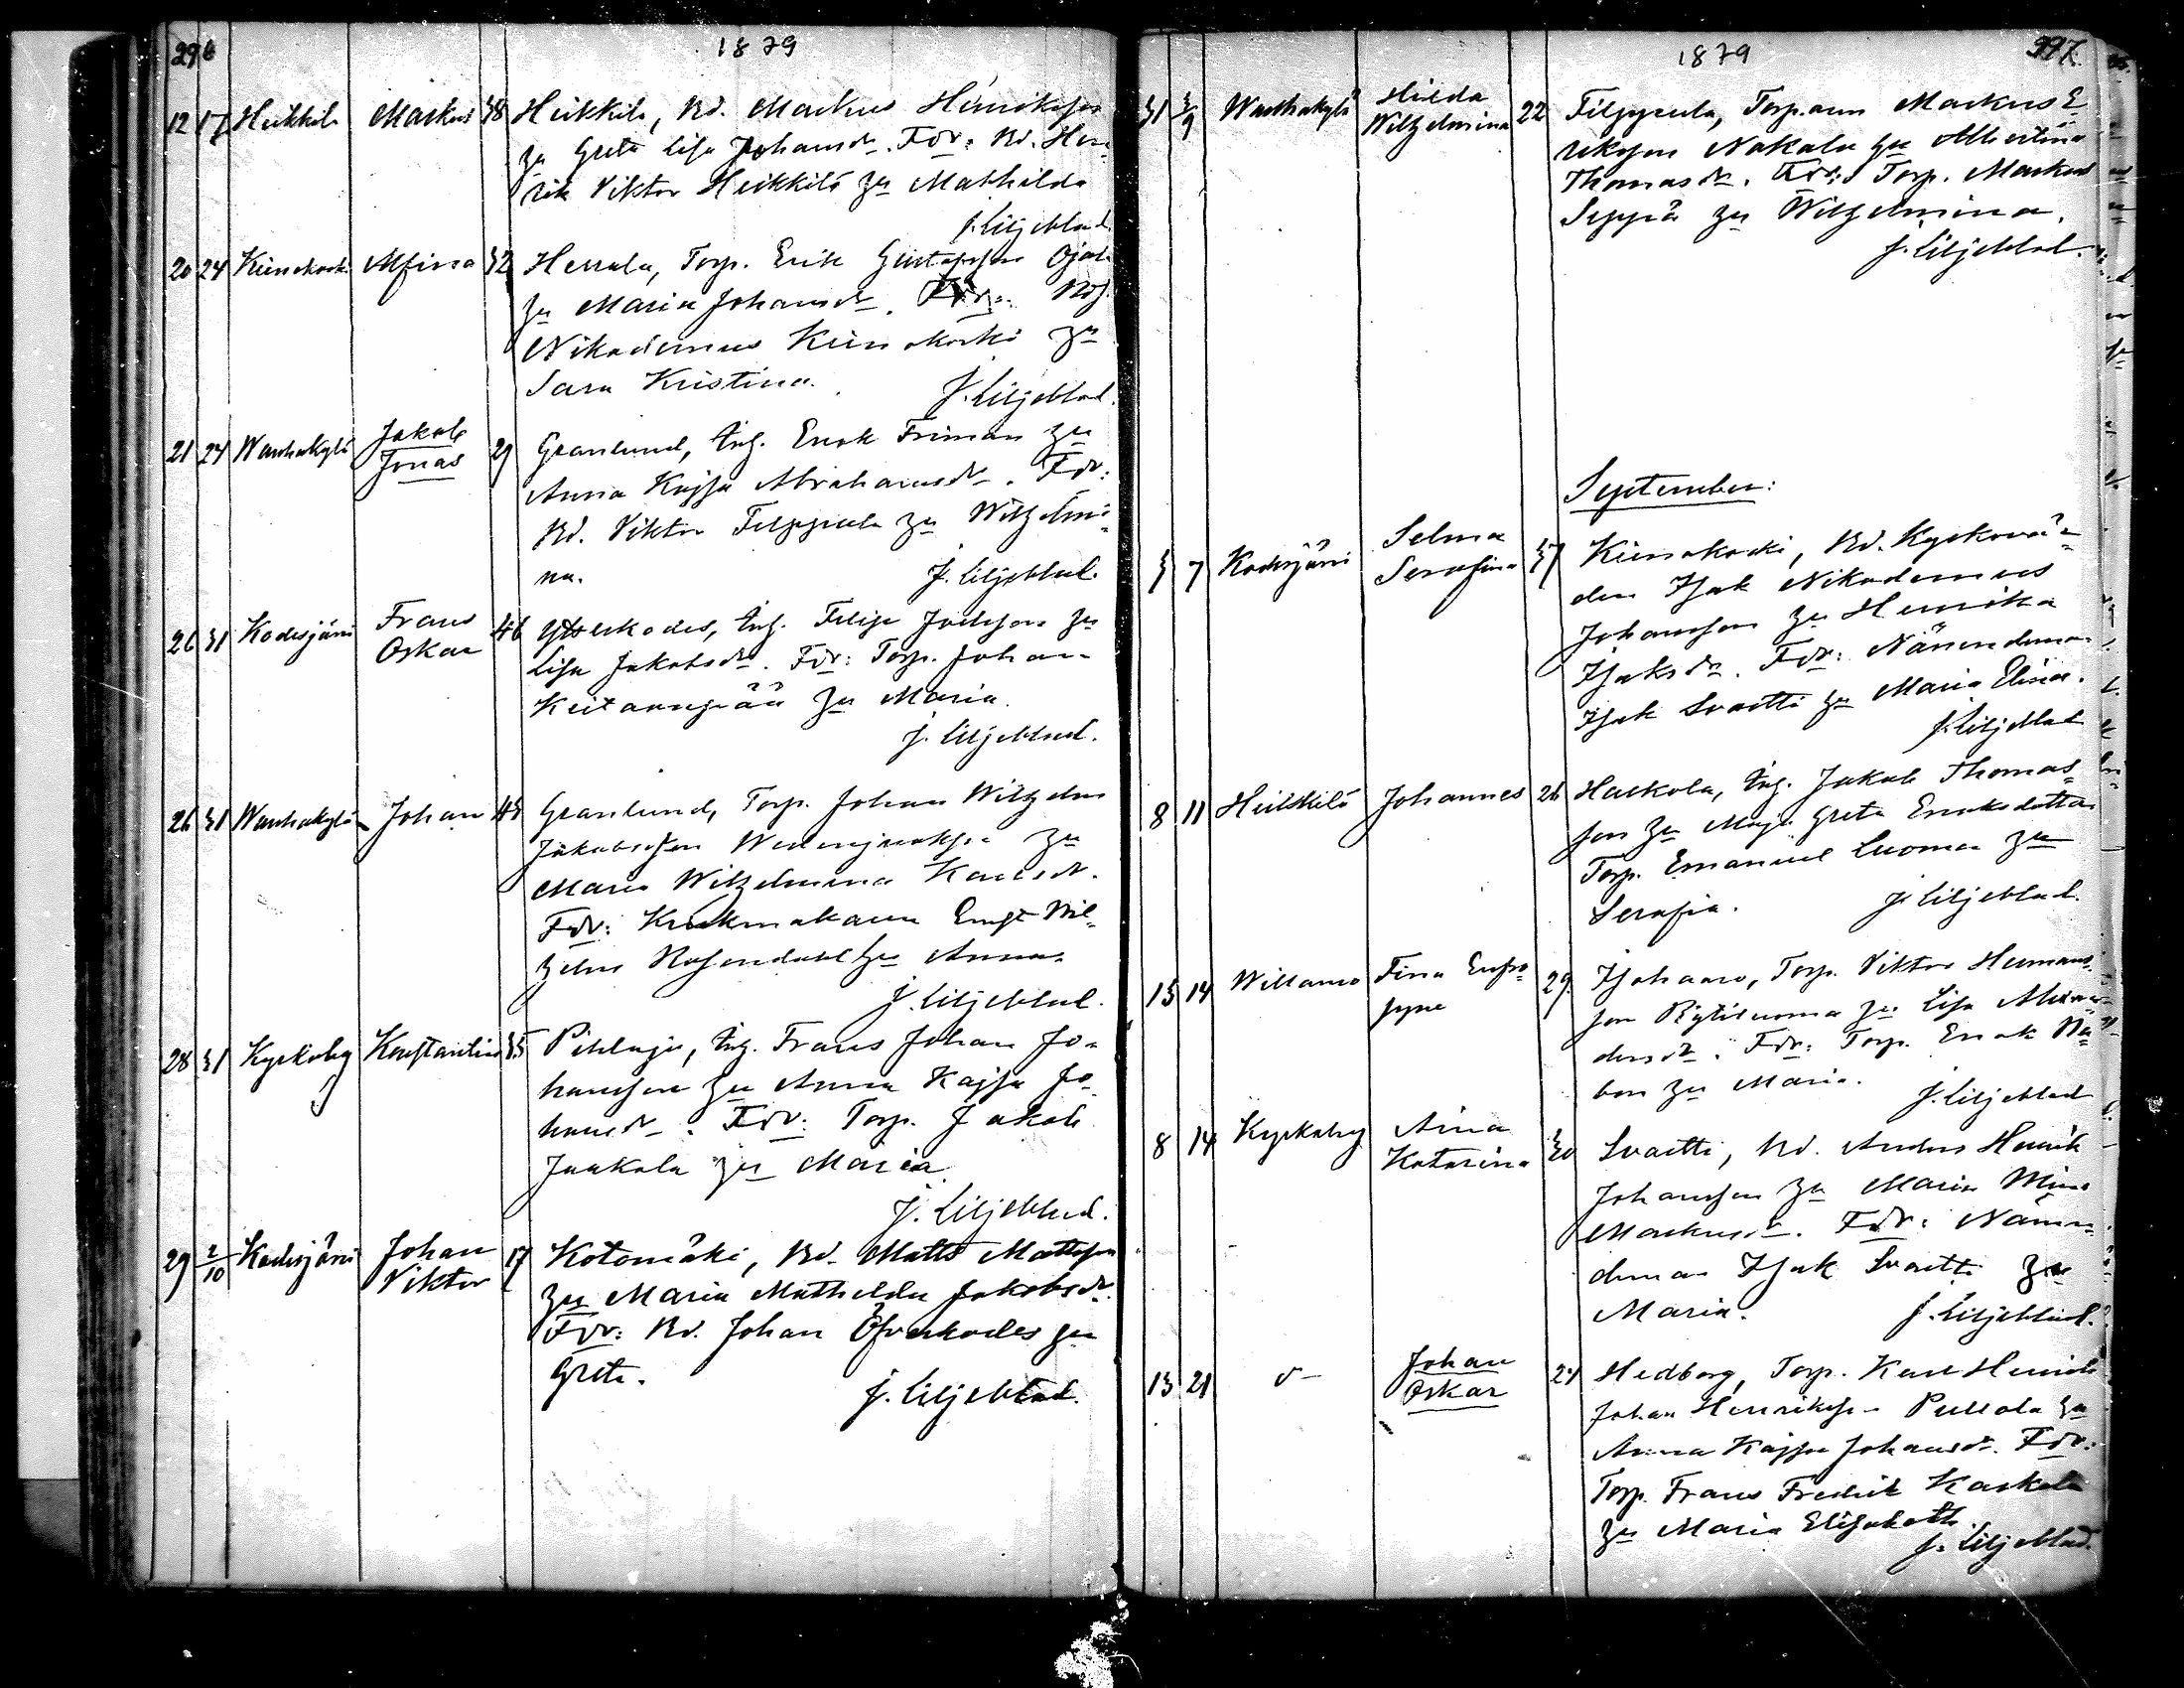 296
1879
12 17 Heikkilä Markus 38 Heikkilä, Bd. Markus Henriksson
zu Greta Lisa Johansdr. Fdr: Bd. Hen-
rik Viktor Heikkilä zu Mathilda
J. Liljeblad.
20 24 Kiinakoski Alfina 32 Herrala, Torp. Erik Gustafsson Ojala
zu Maria Johansdr. Fdr:
Nikodemus Kiinakoski zu
Sara Kristina.
J. Liljeblad.
21 24 Wanhakylä Jakob
Jonas 29 Granlund, Inh. Enok Friman zu
Anna Kajsa Abrahamsdr. Fdr:
Bd. Viktor Filppula zu Wilhelmi-
na.
J. Liljeblad.
26 31 Kodesjärvi Frans
Oskar 46 Ytterkodes, Inh. Filip Joelsson zu
Lisa Jakobsdr. Fdr: Torp. Johan
Keitaanpää zu Maria.
J. Liljeblad.
26 31 Wanhakylä Johan Granlund, Torp. Johan Wilhelm
Jakobsson zu
Maria Wilhelmina Karlsdr.
Fdr: Krukmakaren Ernst Wil-
helm Rosendahl zu Anna.
J. Liljeblad.
28 31 Kyrkoby Konstantin 35 Pihlaja, Inh. Frans Johan Jo-
hansson zu Anna Kajsa Jo-
hansdr. Fdr: Torp. Jakob
Jaakola zu Maria
J. Liljeblad.
29 2/10 Kodesjärvi Johan
Viktor 17 Kotomäki, Bd. Matts Mattsson
zu Maria Mathilda Jakobsdr.
Fdr: Bd. Johan Öfverkodes zu
Greta.
J. Liljeblad.
1879
297.
31 3/9 Wanhakylä Hilda
Wilhelmina 22 Filppula, Torparen Markus E-
riksson Nakala zu Albertina
Thomasdr. Fdr: Torp. Markus
Seppä zu Wilhelmina.
J. Liljeblad.
September:
3 7 Kodesjärvi Selma
Serafina 37 Kiinakoski, Bd. Kyrkovär-
den Isak Nikodemus
Johansson zu Henrika
Isaksdr. Fdr: Nämndeman
Isak Svartti zu Maria Elina.
J. Liljeblad
8 11 Heikkilä Johannes 26 Harkola, Inh. Jakob Thomas-
son zu Maja Greta Enoksdotter
Torp. Emanuel Luoma zu
Serafia.
J. Liljeblad.
13 14 Willamo Fina Eufro-
syne 29 Isohaaro, Torp. Viktor Hermans-
son Rytiluoma zu Lisa
Fdr: Torp. Enok
zu Maria.
J. Liljeblad
8 14 Kyrkoby Aina
Katarina 30 Svartti, Bd. Anders Henrik
Johansson zu Maria Mina
Markusdr. Fdr: Nämn-
deman Isak Svartti zu
Maria.
J. Liljeblad.
13 21 Johan
Oskar 24 Hedborg, Torp. Karl Henrik
Johan Henriksson Pullola zu
Anna Kajsa Johansdr. Fdr:
Torp. Frans Fredrik Kaskela
zu Maria Elisabeth.
J. Liljeblad.